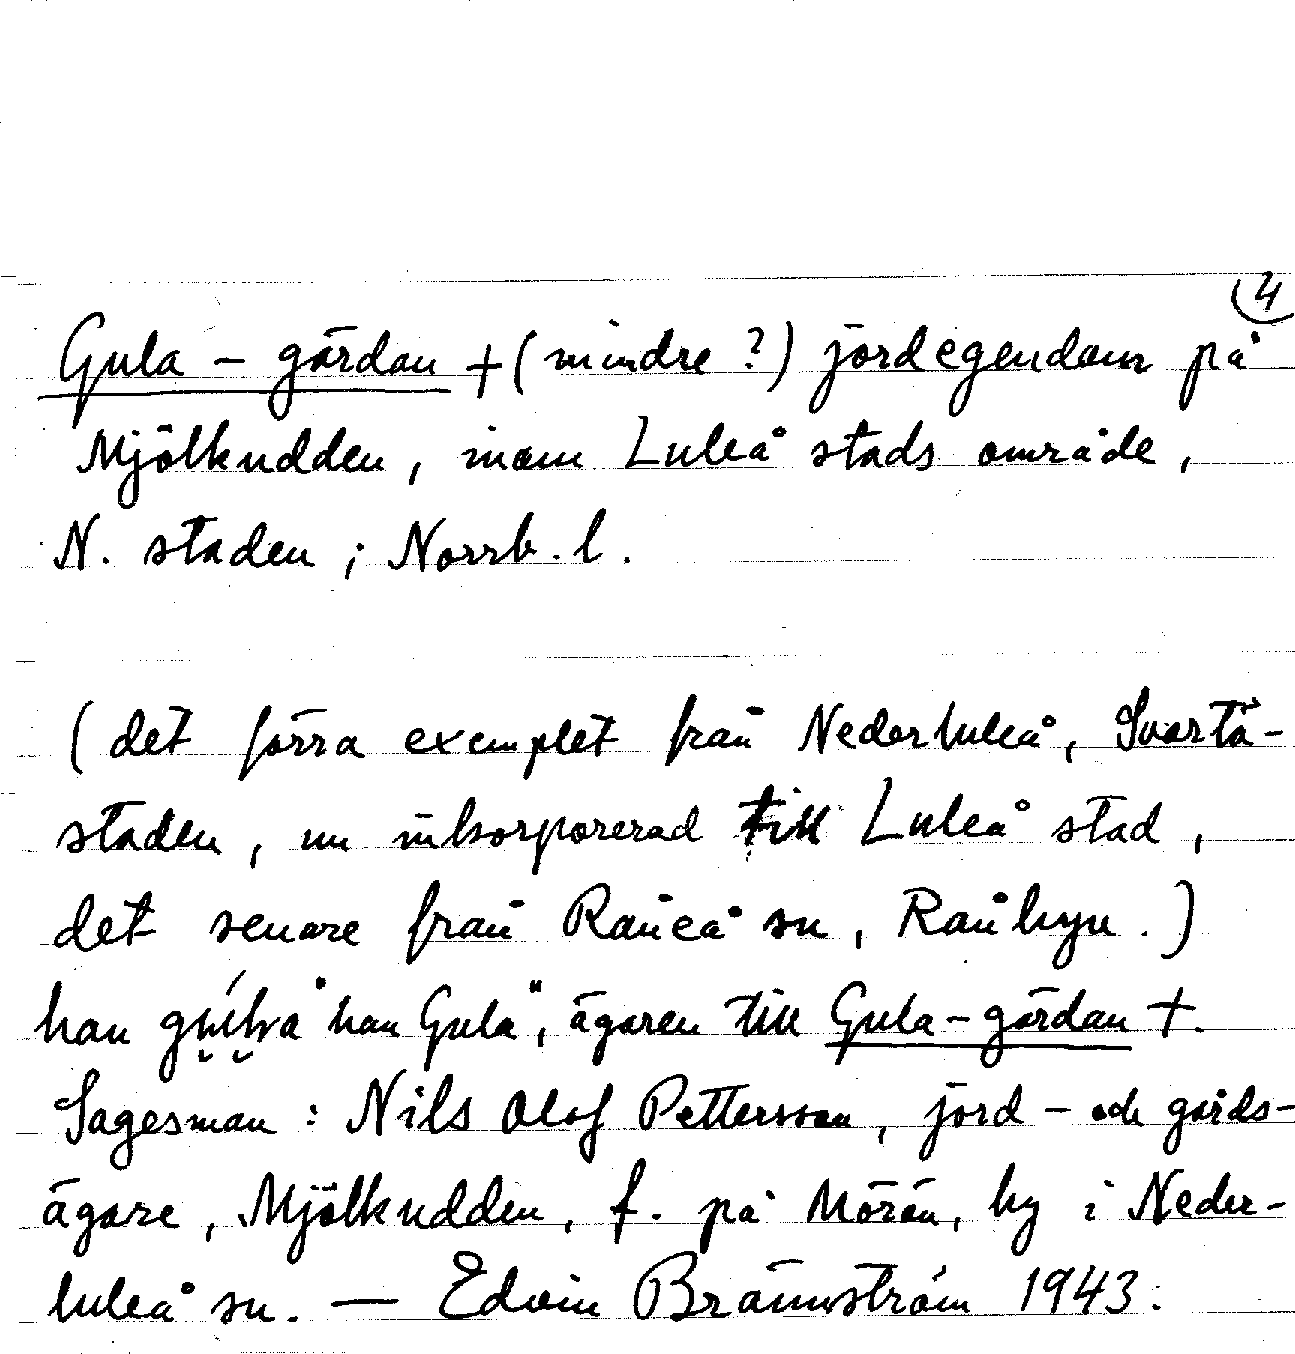 4
Gula - gårdan + (mindre ?) jordegendom på
Mjölkudden, inom Luleå stads område,
N. staden ; Norrb. l.
(det förra exemplet från Nederluleå, Svartö-
staden, nu inkorporerad till Luleå stad,
det senare från Råneå sn, Rånbyn.)
han "han Gula", ägaren till Gula-gårdan +.
Sagesman : Nils Olof Pettersson, jord - och gårds-
ägare, Mjölkudden, f. på Mörön, by i Neder-
luleå sn. — Edvin Brännström 1943.